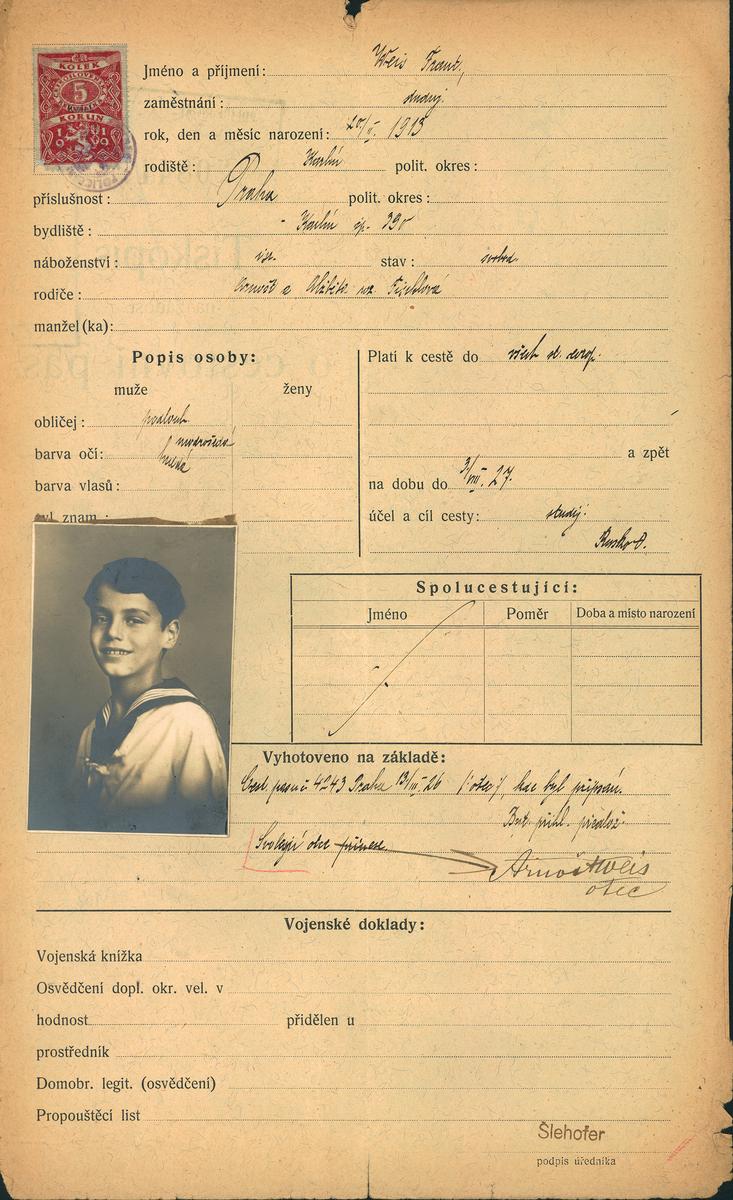 ČR
KOLEK
5
KORUN
1919
Jméno a příjmení: Weis Frant.
zaměstnání: studuj.
rok, den a měsíc narození: 1913
rodiště: Karlín polit. okres:
příslušnost: Praha polit. okres:
bydliště: Karlín čp. 390
náboženství: isr. stav: svobod.
rodiče: Arnošt a Alžběta roz. Fischlová
manžel (ka):
Popis osoby:
muže ženy
obličej: podlouh.
barva očí: modrošedé
hnědá
barva vlasů:
zvl. znam.:
Platí k cestě do všech st. evrop.
a zpět
na dobu do 3/VIII. 27.
účel a cíl cesty: studij.
Spolucestující:
Jméno Poměr Doba a místo narození
Vyhotoveno na základě:
Cest. pasu č 4243 Praha 13/III. 26 /: otec :/, kde byl připsán.
Byt. přihl. předlož.
Svolení otce přinese
Arnošt Weis
otec
Vojenské doklady:
Vojenská knížka
Osvědčení dopl. okr. vel. v
hodnost přidělen u
prostředník
Domobr. legit. (osvědčení)
Propouštěcí list
Šlehofer
podpis úředníka